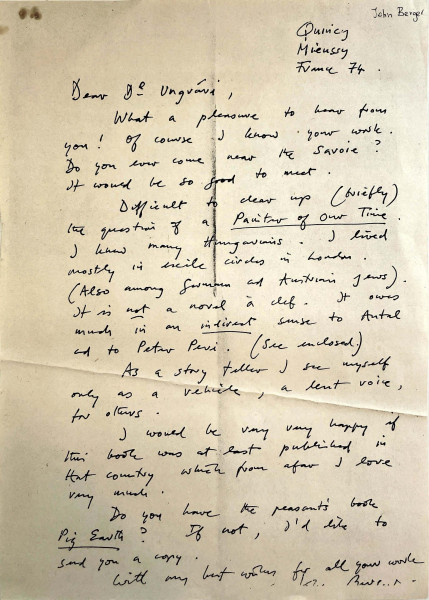 John Berger
Quincy
Mieussy
France 74.
Dear Dr Ungvári,
What a pleasure to hear from
you! Of course I know your work.
Do you ever come near the Savoie?
It would be so good to meet.
Difficult to clear up (briefly)
the question of a Painter of Our Time.
I knew many Hungarians. I lived
mostly in exile circles in London.
(Also among German ad Austrian Jews).
It is not a novel à clef. It owes
much in an indirect sense to Antal
ad to Peter Peri. (See enclosed.)
As a story teller I see myself
only as a vehicle, a lent voice,
for others.
I would be very very happy if
this book was at last published in
that country which from afar I love
very much.
Do you have the peasants book
Pig Earth? If not, I'd like to
send you a copy.
With my best wishes for all your work